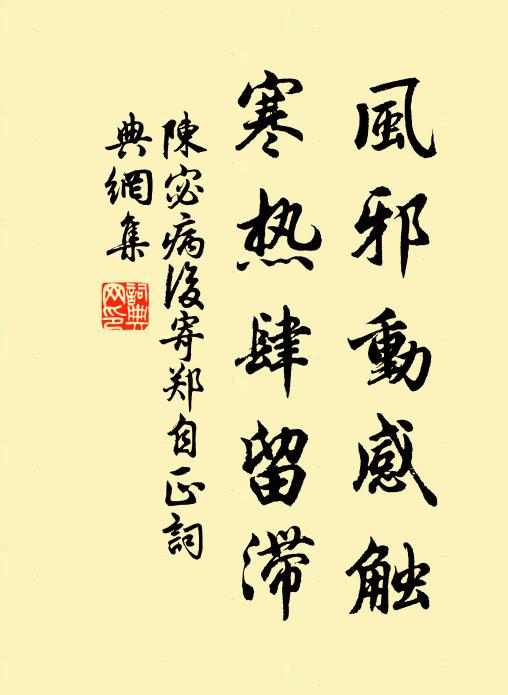 風邪動感触
寒热肆留滞
陳宓病後寄郑自正詞
典網集
詞典
网印